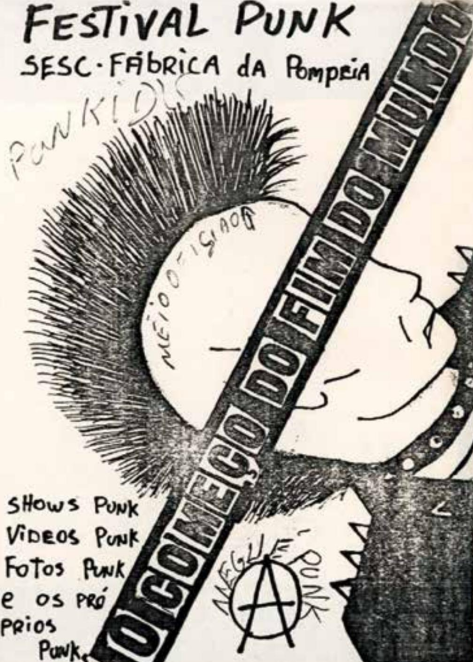 FESTIVAL PUNK
SESC-FÁBRICA dA POMPEIA
PUNKIDS
O COMEÇO DO FIM DO MUNDO
SHOWS PUNK
VIDEOS PUNK
FOTOS PUNK
e os PRÓ
PRIOS
PUNK.
PUNK
A